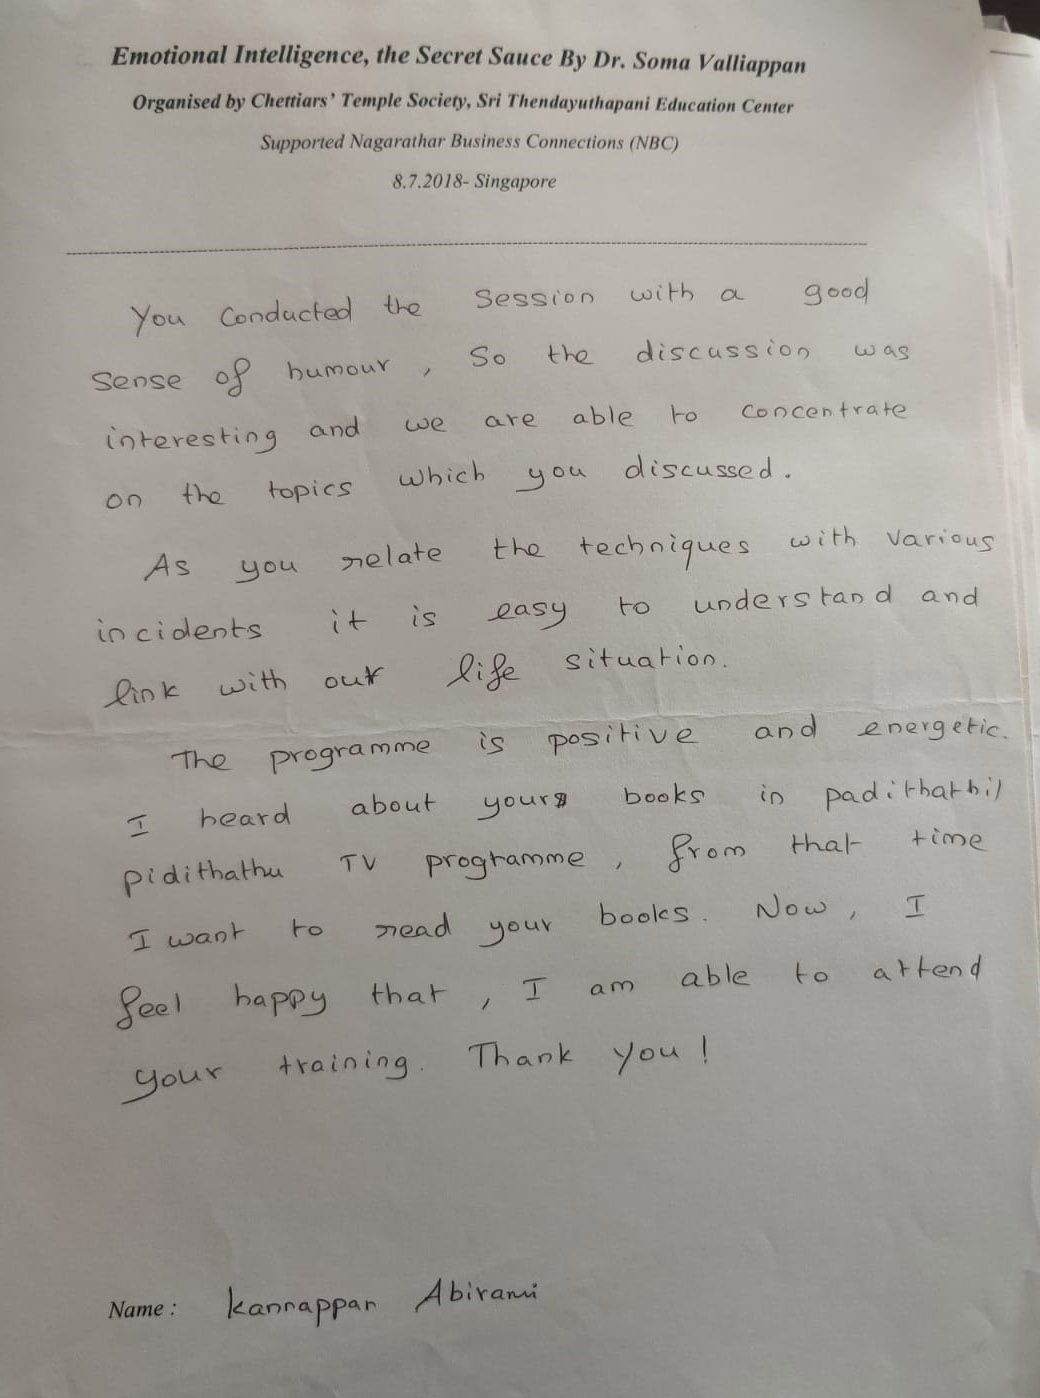 Emotional Intelligence, the Secret Sauce By Dr. Soma Valliappan
Organised by Chettiars' Temple Society, Sri Thendayuthapani Education Center
Supported Nagarathar Business Connections (NBC)
8.7.2018- Singapore
You Conducted the Session with a good
Sense of humour, So the discussion was
interesting and we are able to concentrate
on the topics which you discussed.
As you relate the techniques with various
incidents it is easy to understand and
link with our life situation.
The programme is positive and energetic.
I heard about your books in padithathil
pidithathu TV programme, from that time
I want to read your books. Now, I
feel happy that, I am able to attend
your training. Thank you!
Name: Kannappan Abirami